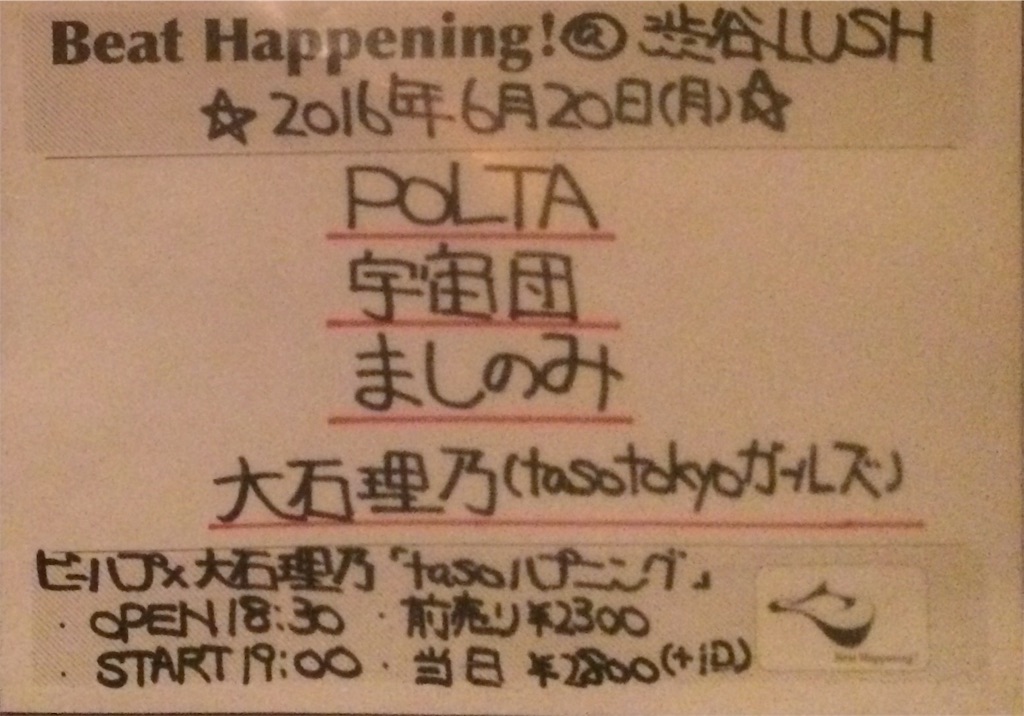 Beat Happening!@渋谷LUSH
☆2016年6月20日(月)☆
POLTA
宇宙団
ましのみ
大石理乃(tasotokyoガールズ)
ビーハプ×大石理乃「tasoハプニング」
・OPEN18:30・前売り¥2300
・START19:00・当日¥2800(+1D)
Beat Happening!